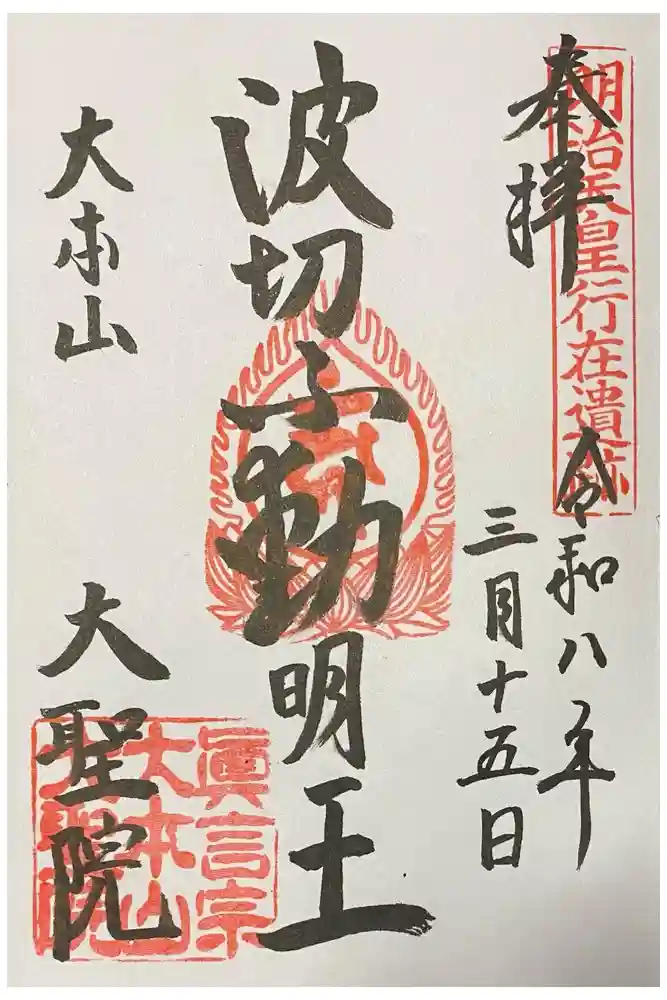 奉拝
明治天皇行在遺跡
令和八年
三月十五日
波切不動明王
大本山
大聖院
眞言宗
大本山
大聖院